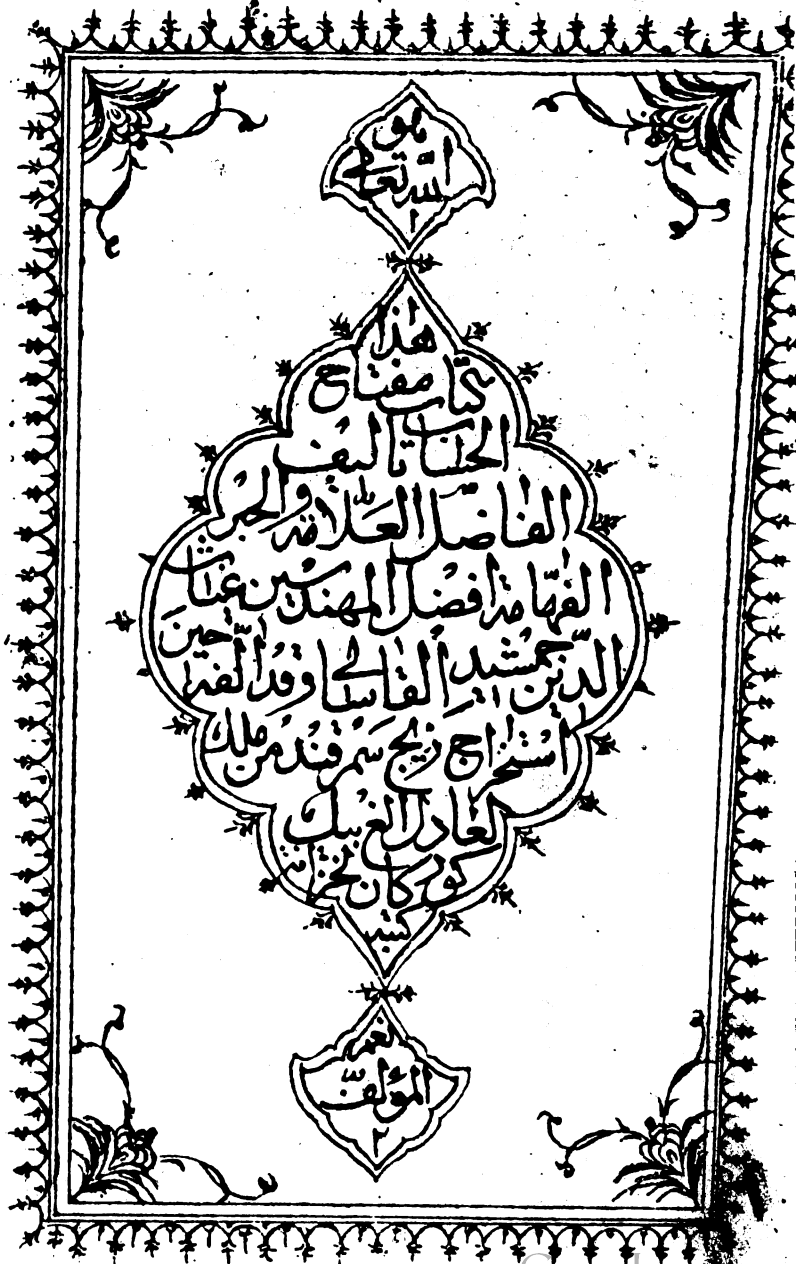 هو
الله تعالى
١
هذا
كتاب مفتاح
الحساب تأليف
الفاضل العلامة والحبر
الفهامة أفضل المهندسين غياث
الدين جمشيد القاساني وقد ألفه حين
استخراج زيج سمرقند من ملك
لعادل الغ بيك
كوركان لخزانة
كتبه
المؤلف
٢